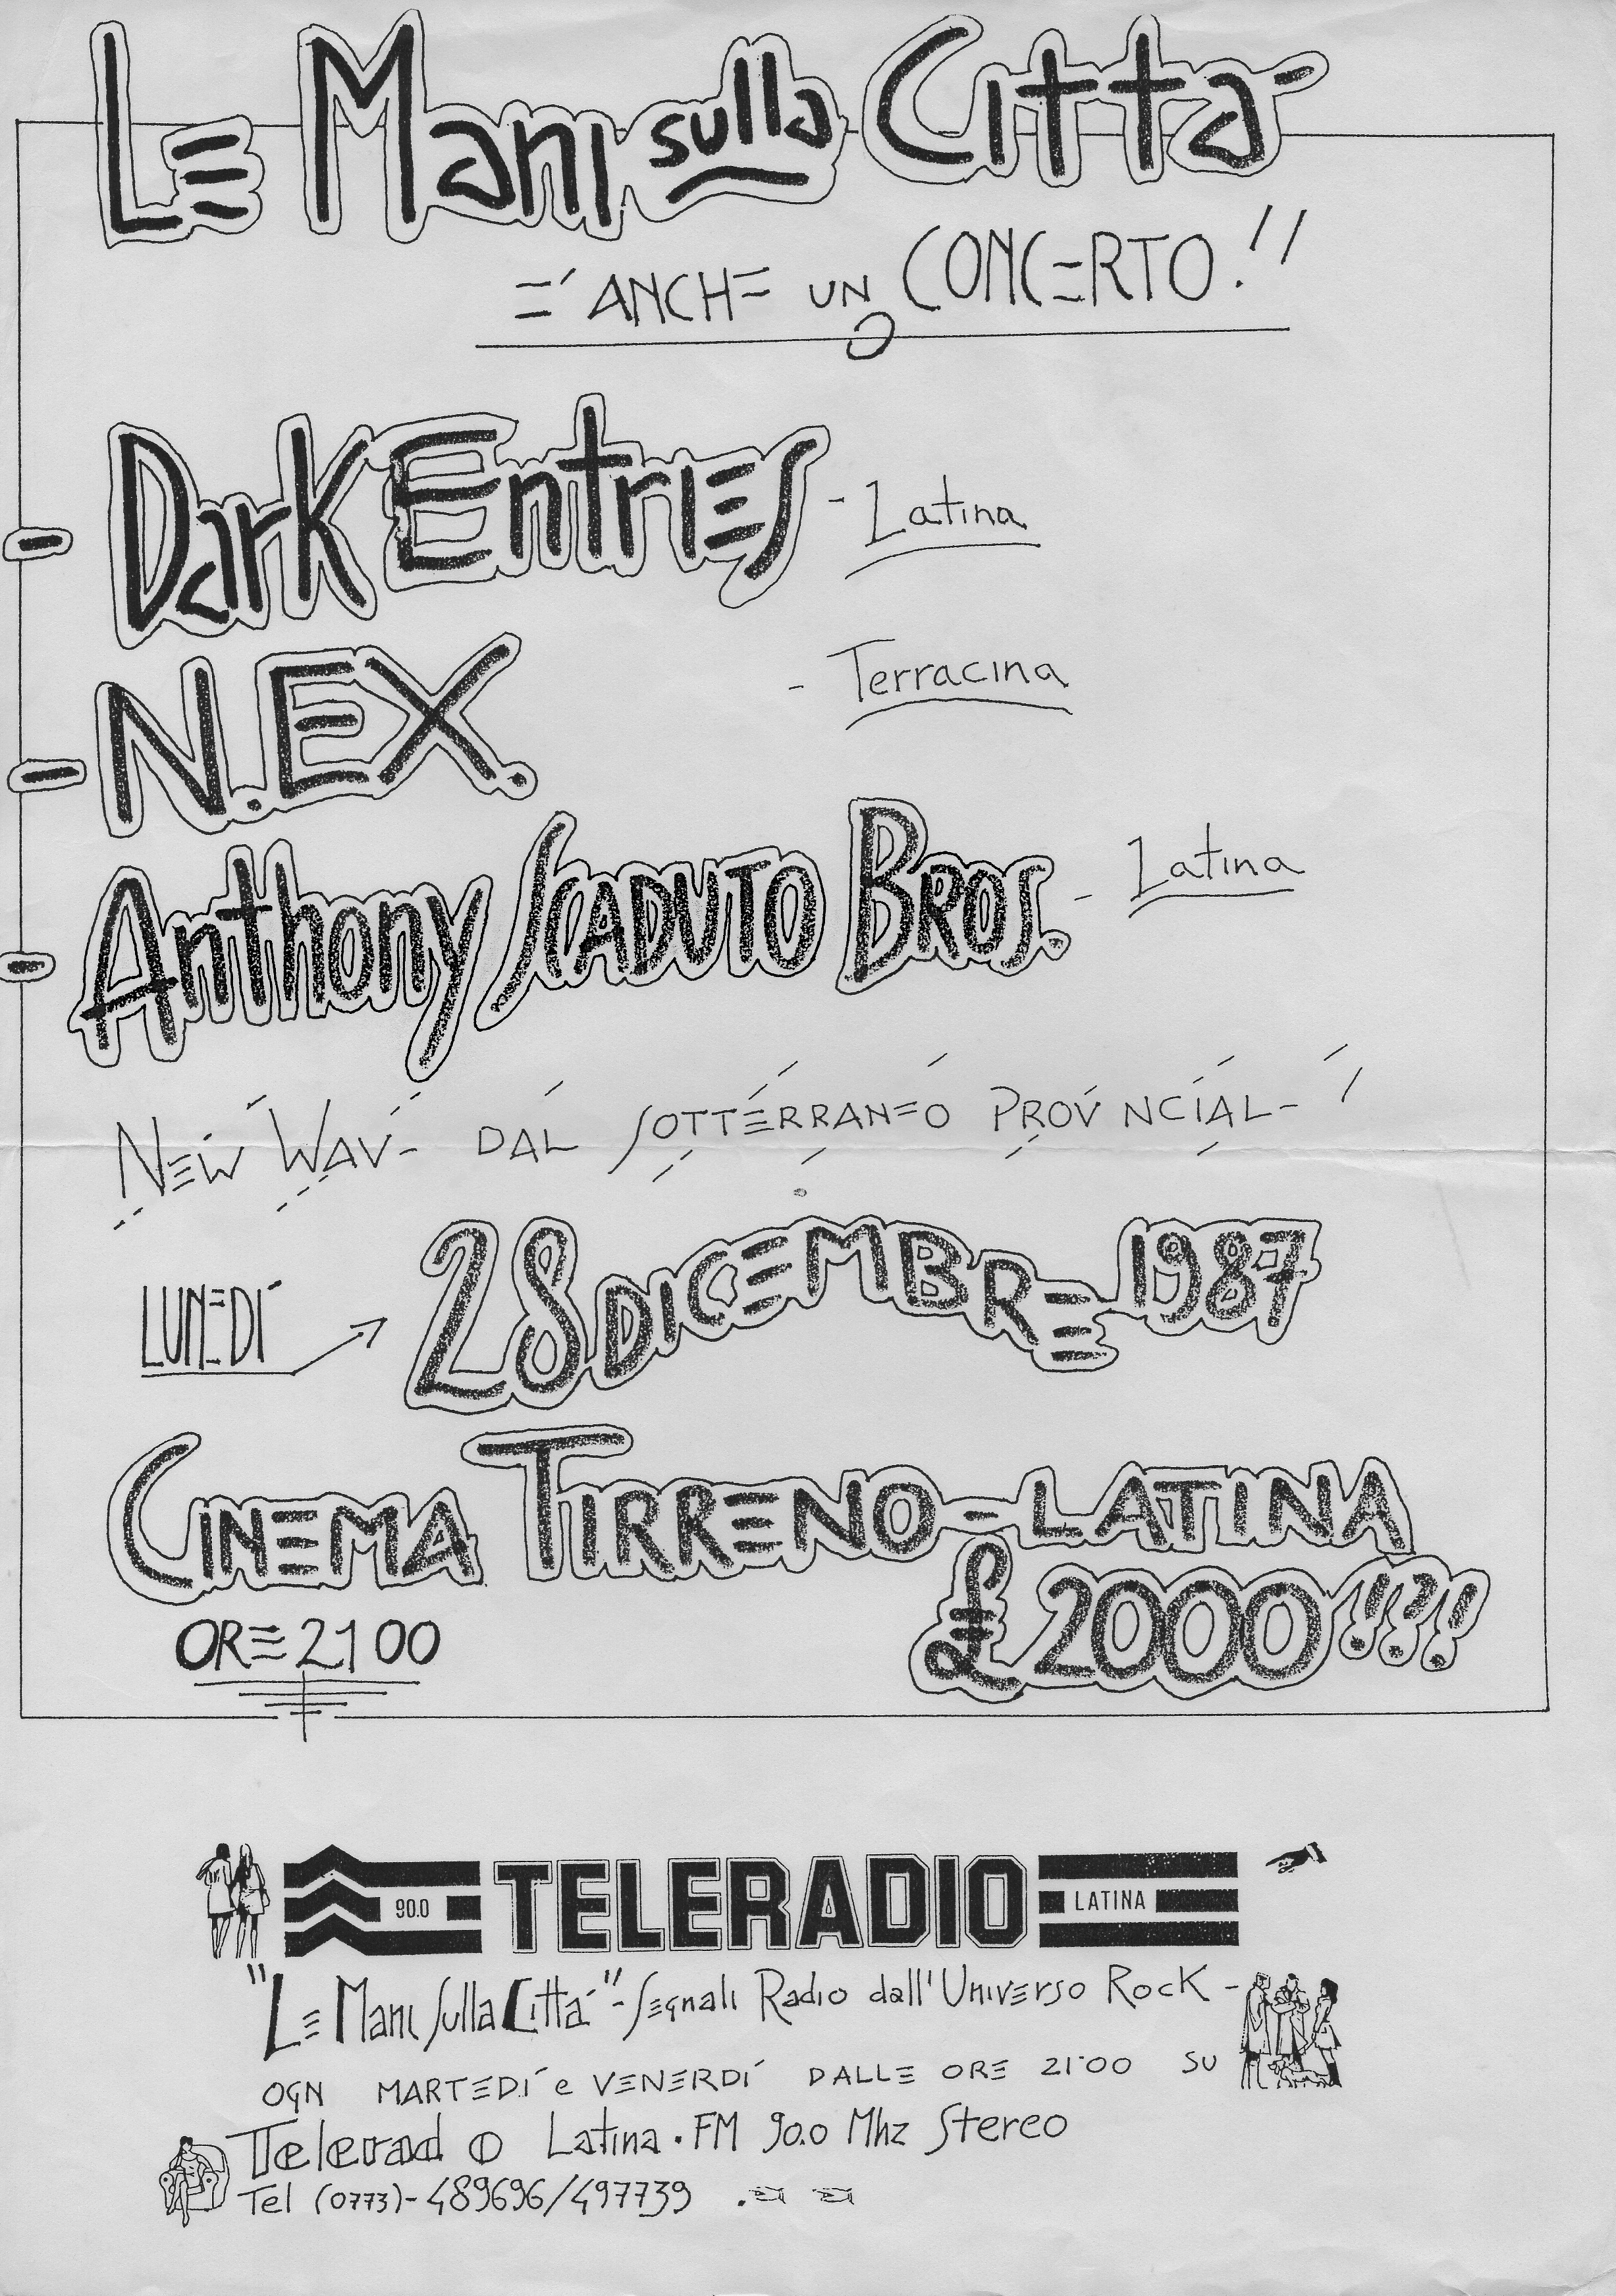 Le Mani sulla Città
E' ANCHE UN CONCERTO!!
- Dark Entries - Latina
- N.EX. - Terracina
- Anthony Scaduto Bros. - Latina
NEW WAVE DAL SOTTERRANEO PROVINCIALE!
LUNEDÍ 28 DICEMBRE 1987
CINEMA TIRRENO - LATINA
£ 2000!!!
ORE 21 00
90.0 TELERADIO LATINA
"Le Mani Sulla Cittá" - Segnali Radio dall'Universo Rock -
OGNI MARTEDI' e VENERDI' DALLE ORE 21:00 SU
Teleradio Latina . FM 90.0 Mhz Stereo
Tel (0773)-489696/497739